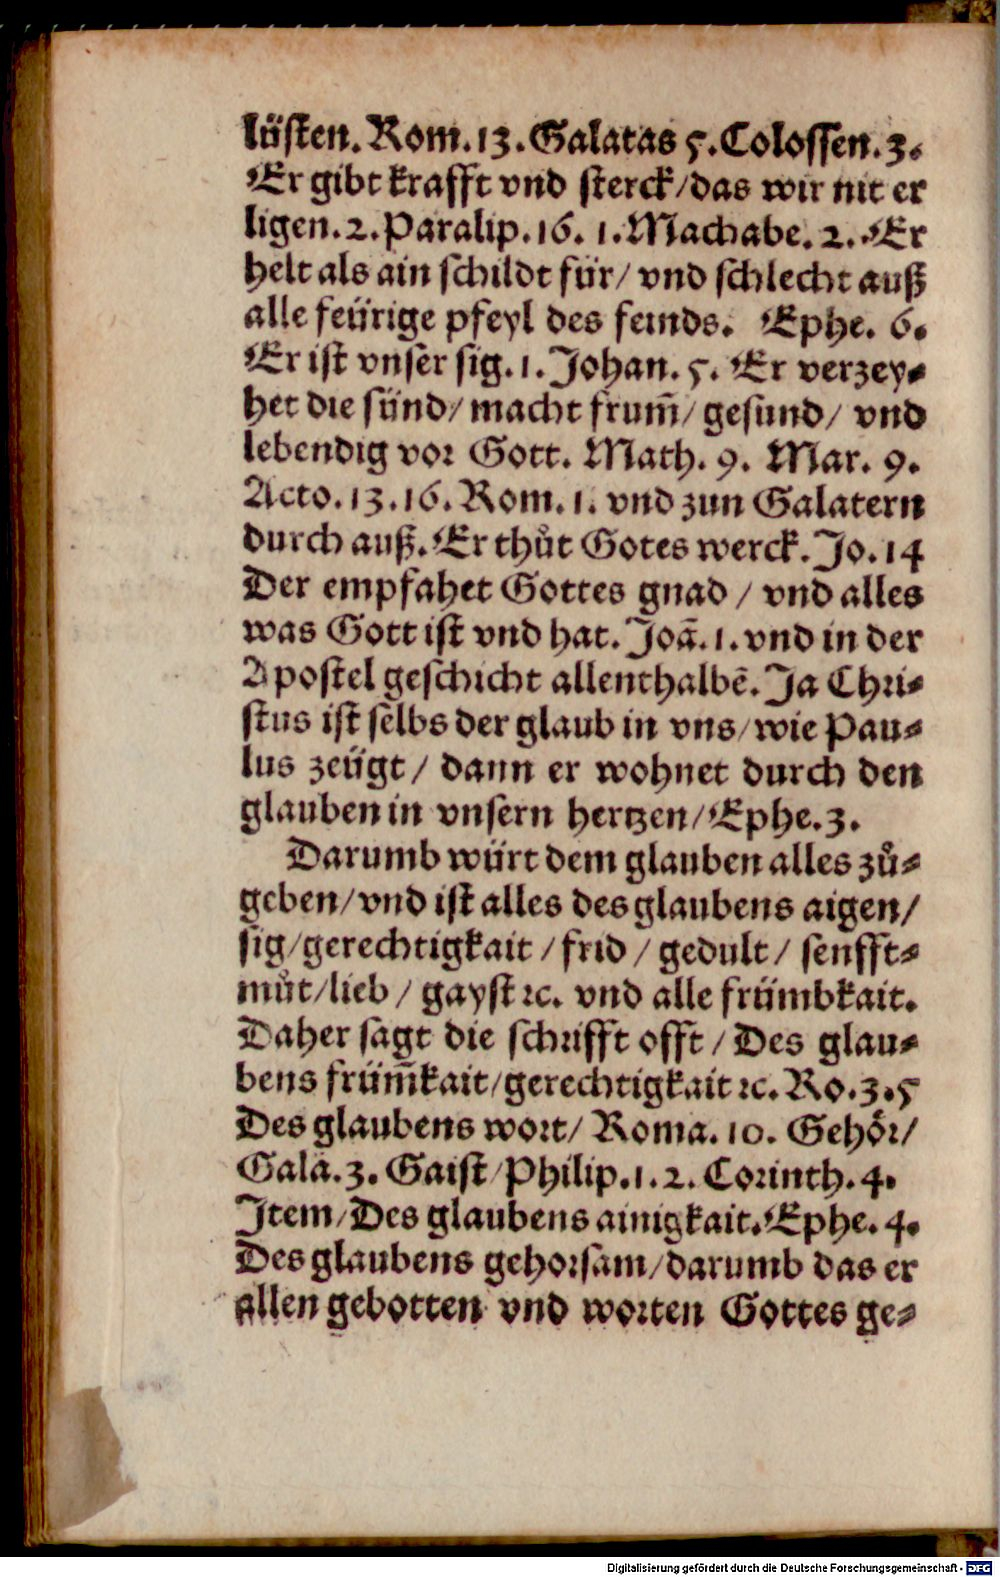 lüsten. Rom. 13. Galatas 5. Colossen. 3.
Er gibt krafft vnd sterck/das wir nit er
ligen. 2. Paralip. 16. 1. Machabe. 2. Er
helt als ain schildt für/ vnd schlecht auß
alle feürige pfeyl des feinds. Ephe. 6.
Er ist vnser sig. 1. Johan. 5. Er verzey-
het die sünd/ macht frum̃/ gesund/ vnd
lebendig vor Gott. Math. 9. Mar. 9.
Acto. 13. 16. Rom. 1. vnd zun Galatern
durch auß. Er thůt Gotes werck. Jo. 14
Der empfahet Gottes gnad / vnd alles
was Gott ist vnd hat. Joã. 1. vnd in der
Apostel geschicht allenthalbẽ. Ja Chri-
stus ist selbs der glaub in vns/ wie Pau-
lus zeügt / dann er wohnet durch den
glauben in vnsern hertzen/ Ephe. 3.
Darumb würt dem glauben alles zů-
geben/ vnd ist alles des glaubens aigen/
sig/ gerechtigkait / frid / gedult / senfft-
můt/lieb / gayst ꝛc. vnd alle frümbkait.
Daher sagt die schrifft offt / Des glau-
bens früm̃kait/ gerechtigkait ꝛc. Ro. 3. 5
Des glaubens wort/ Roma. 10. Gehör/
Gala. 3. Gaist/ Philip. 1. 2. Corinth. 4.
Item/ Des glaubens ainigkait. Ephe. 4.
Des glaubens gehorsam/ darumb das er
allen gebotten vnd worten Gottes ge-
Digitalisierung gefördert durch die Deutsche Forschungsgemeinschaft - DFG